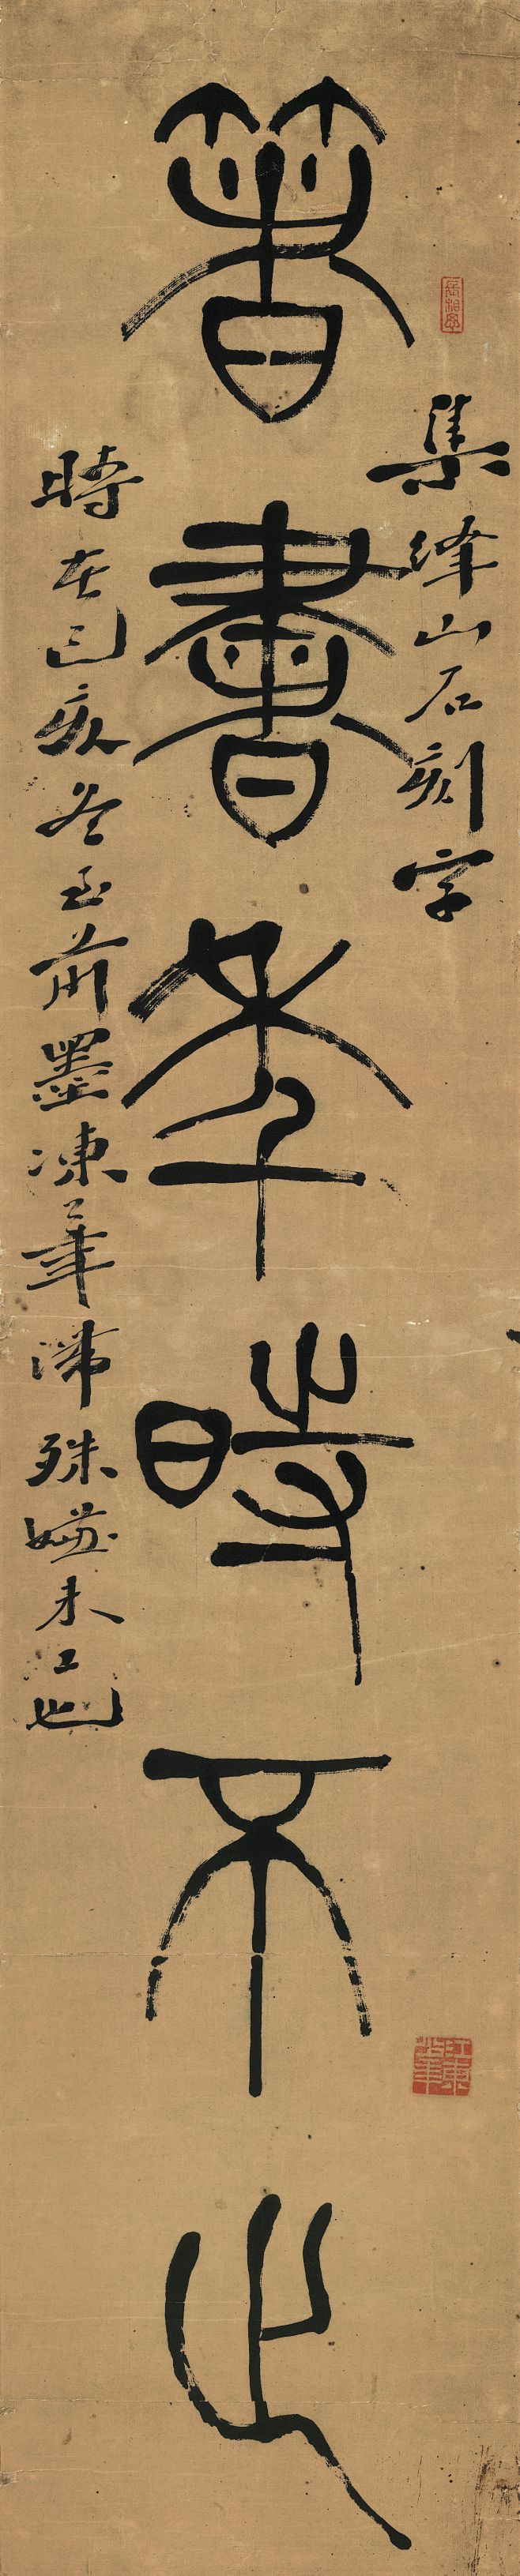 集繹山石刻字
箸書時不止
時在己亥冬至前墨凍筆滯殊嫌未工也